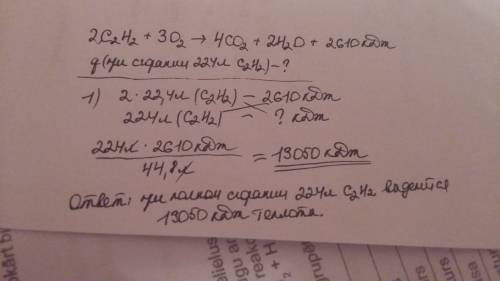 2C2H2 + 3O2 → 4CO2 + 2H2O + 2610 кдж
q (при сгорании 224л C2H2) – ?
1) 2 · 22,4л (C2H2) – 2610 кдж
224л (C2H2) – ? кдж
224л · 2610 кдж / 44,8л = 13050 кдж
Ответ: при полном сгорании 224л C2H2 выделится
13050 кдж теплоты.
okārt b
reakc
2 + H
gu ar